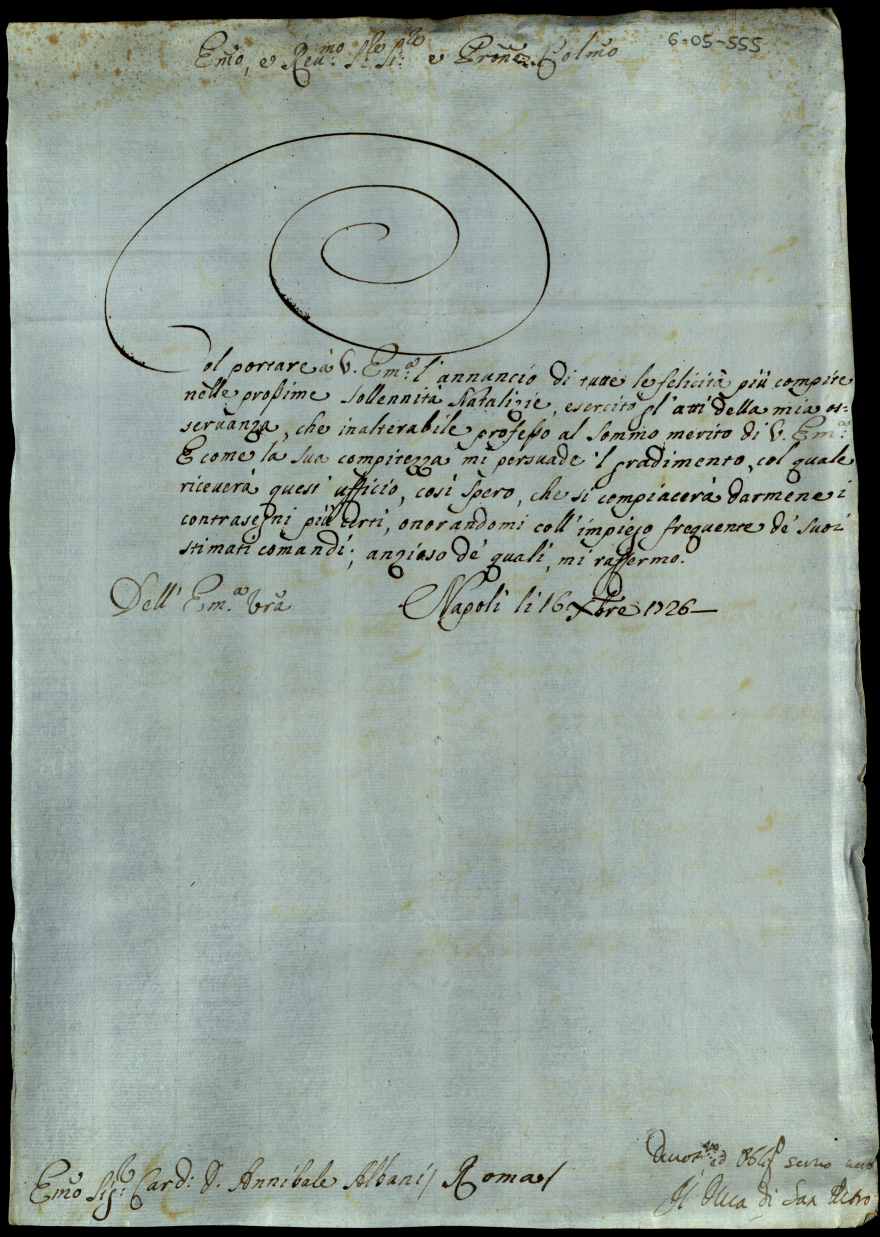 6-05-555
Em̃o, e Reu.mo Sig.re Sig.re e Pron̄e Colmo
Col portare à V. Em.a l'annuncio di tutte le felicità più compite
nelle prossime sollennità Natalizie, esercito gl'atti della mia os-
servanza, che inalterabile professo al sommo merito di V. Em.a
E come la sua compitezza mi persuade 'l gradimento, col quale
riceverà quest'ufficio, così spero, che si compiacerà darmene i
contrasegni più certi, onorandomi coll'impiego frequente de' suoi
stimati comandi; anzioso de' quali, mi raffermo.
Dell'Em.a Vrã
Napoli li 16 Xbre 1726
Em̃o Sig.re Card: D. Annibale Albani / Roma /
Deuot.mo ed Oblig.o seruo uero
Il Duca di San Pietro